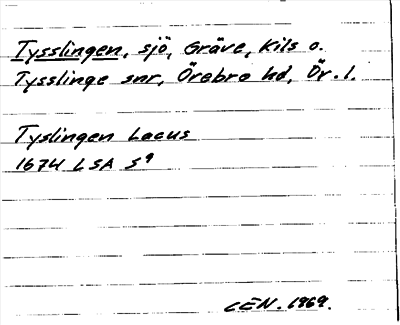 Tysslingen, sjö, Gräve, Kils o.
Tysslinge snr, Örebro hd, Ör. l.
Tyslingen Lacus
1674 LSA S9
CEN. 1969.